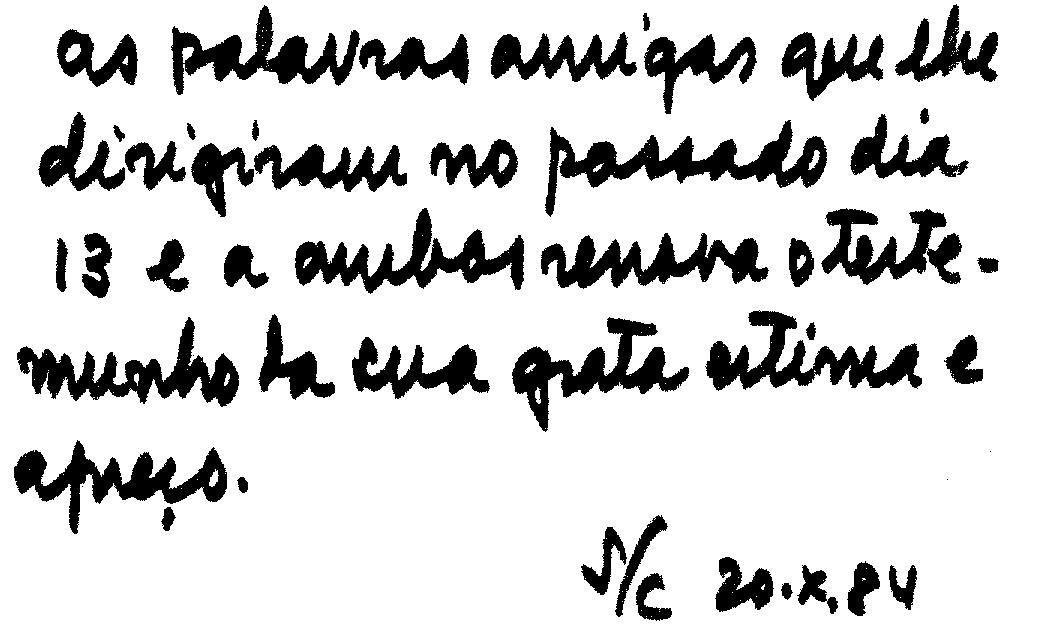 as palavras amigas que lhe
dirigiram no passado dia
13 e a ambos renova o teste-
munho da sua grata estima e
apreço.
S/C 20.X.84